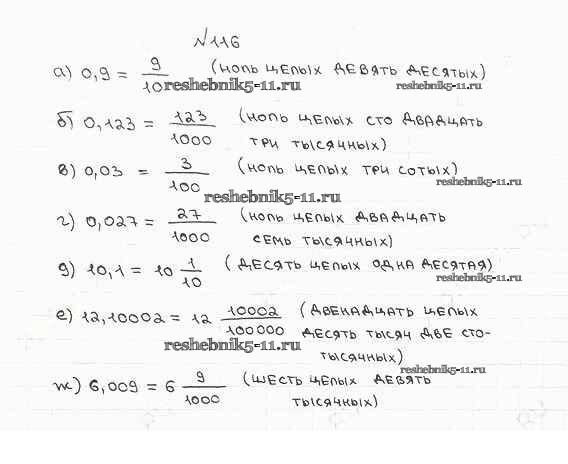 №116
а) 0,9 = 9/10 (ноль целых девять десятых)
reshebnik5-11.ru reshebnik5-11.ru
б) 0,123 = 123/1000 (ноль целых сто двадцать
три тысячных)
в) 0,03 = 3/100 (ноль целых три сотых)
reshebnik5-11.ru
reshebnik5-11.ru
г) 0,027 = 27/1000 (ноль целых двадцать
семь тысячных)
д) 10,1 = 10 1/10 (десять целых одна десятая)
reshebnik5-11.ru
е) 12,10002 = 12 10002/100000 (двенадцать целых
десять тысяч две сто-
reshebnik5-11.ru
тысячных)
reshebnik5-11.ru
ж) 6,009 = 6 9/1000 (шесть целых девять
тысячных)